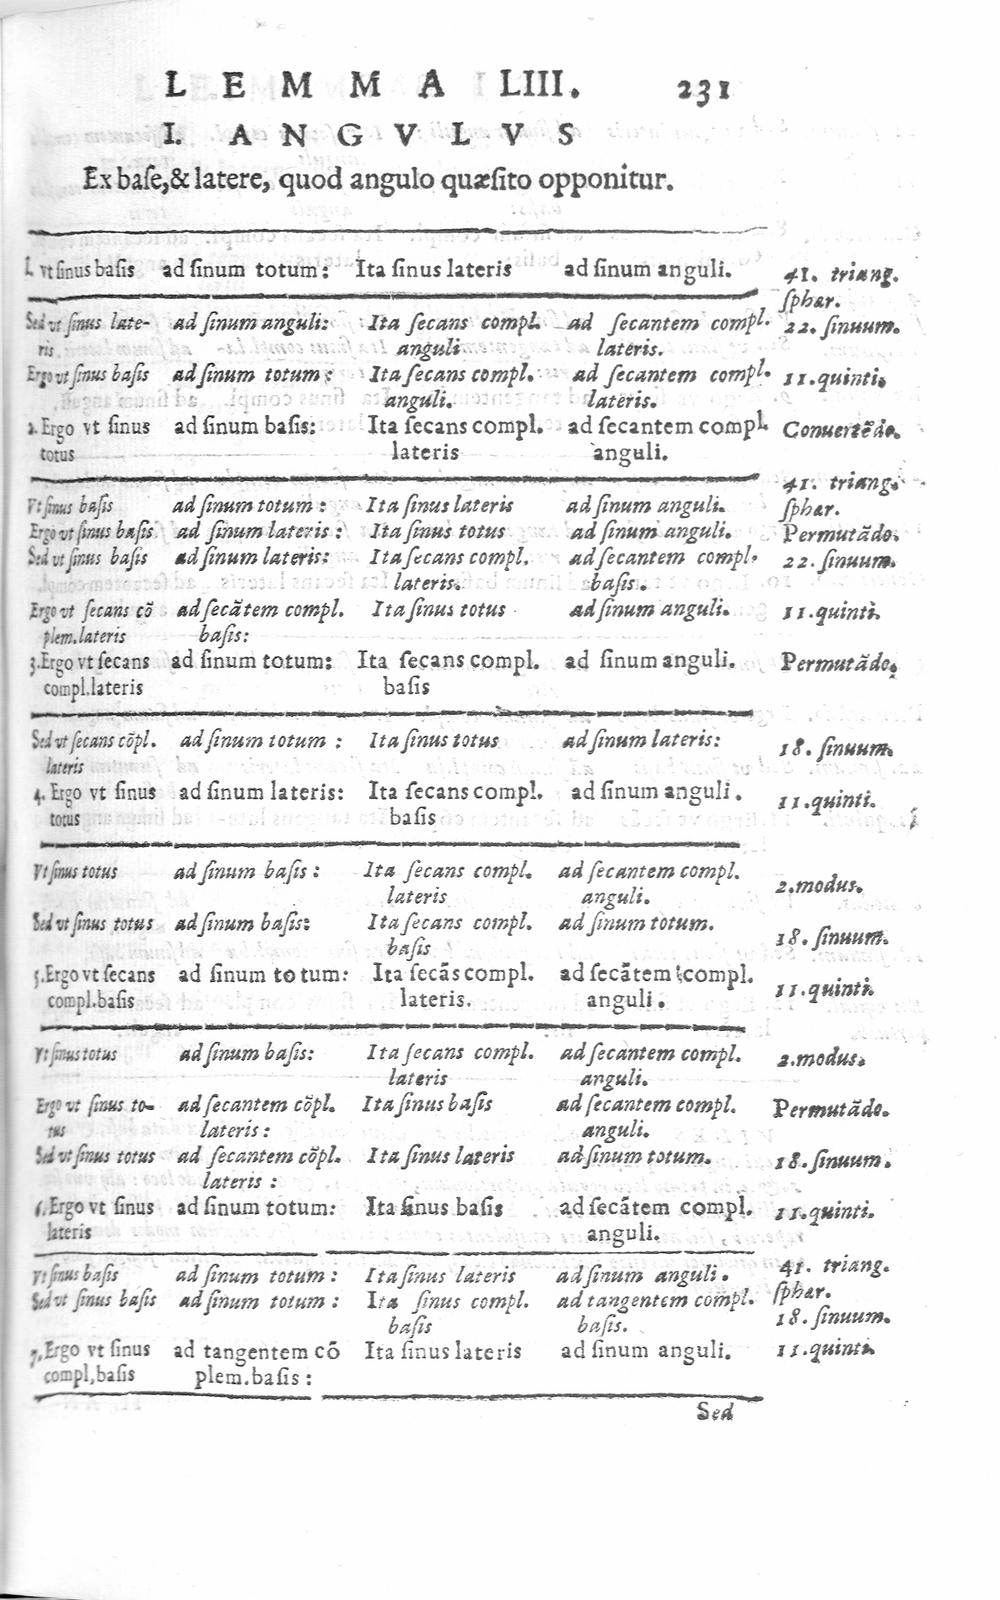 LEMMA LIII. 231
I. ANGVLVS
Ex base,& latere, quod angulo quæsito opponitur.
1. vt sinus basis ad sinum totum: Ita sinus lateris ad sinum anguli. 41. triang.
sphær.
Sed vt ſinus late- ad ſinum anguli: Ita ſecans compl. ad ſecantem compl. 22. ſinuum.
ris. anguli lateris.
Ergo vt ſinus baſis ad ſinum totum: Ita ſecans compl. ad ſecantem compl. 11.quinti.
anguli. lateris.
2. Ergo vt ſinus ad ſinum baſis: Ita ſecans compl. ad ſecantem compl. Conuertẽdo.
totus lateris anguli.
41. triang.
Vt ſinus baſis ad ſinum totum: Ita ſinus lateris ad ſinum anguli. ſphær.
Ergo vt ſinus baſis ad ſinum lateris: Ita ſinus totus ad ſinum anguli. Permutãdo.
Sed vt ſinus baſis ad ſinum lateris: Ita ſecans compl. ad ſecantem compl. 22. ſinuum.
lateris. baſis.
Ergo vt ſecans cõ ad ſecãtem compl. Ita ſinus totus ad ſinum anguli. 11.quinti.
plem.lateris baſis:
3.Ergo vt ſecans ad ſinum totum: Ita ſecans compl. ad ſinum anguli. Permutãdo.
compl.lateris baſis
Sed vt ſecans cõpl. ad ſinum totum: Ita ſinus totus ad ſinum lateris: 18. ſinuum.
lateris
4. Ergo vt ſinus ad ſinum lateris: Ita ſecans compl. ad ſinum anguli. 11.quinti.
totus baſis
Vt ſinus totus ad ſinum baſis: Ita ſecans compl. ad ſecantem compl. 2.modus.
lateris anguli.
Sed vt ſinus totus ad ſinum baſis: Ita ſecans compl. ad ſinum totum. 18. ſinuum.
baſis
5.Ergo vt ſecans ad ſinum totum: Ita ſecãs compl. ad ſecãtem compl. 11.quinti.
compl.baſis lateris. anguli.
Vt ſinus totus ad ſinum baſis: Ita ſecans compl. ad ſecantem compl. 2.modus.
lateris anguli.
Ergo vt ſinus to- ad ſecantem cõpl. Ita ſinus baſis ad ſecantem compl. Permutãdo.
tus lateris: anguli.
Sed vt ſinus totus ad ſecantem cõpl. Ita ſinus lateris ad ſinum totum. 18.ſinuum.
lateris:
6.Ergo vt ſinus ad ſinum totum: Ita ſinus baſis ad ſecãtem compl. 11.quinti.
lateris anguli.
Vt ſinus baſis ad ſinum totum: Ita ſinus lateris ad ſinum anguli. 41. triang.
ſphær.
Sed vt ſinus baſis ad ſinum totum: Ita ſinus compl. ad tangentem compl. 18. ſinuum.
baſis baſis.
7.Ergo vt ſinus ad tangentem cõ Ita ſinus lateris ad ſinum anguli. 11.quinti.
compl,baſis plem.baſis:
Sed